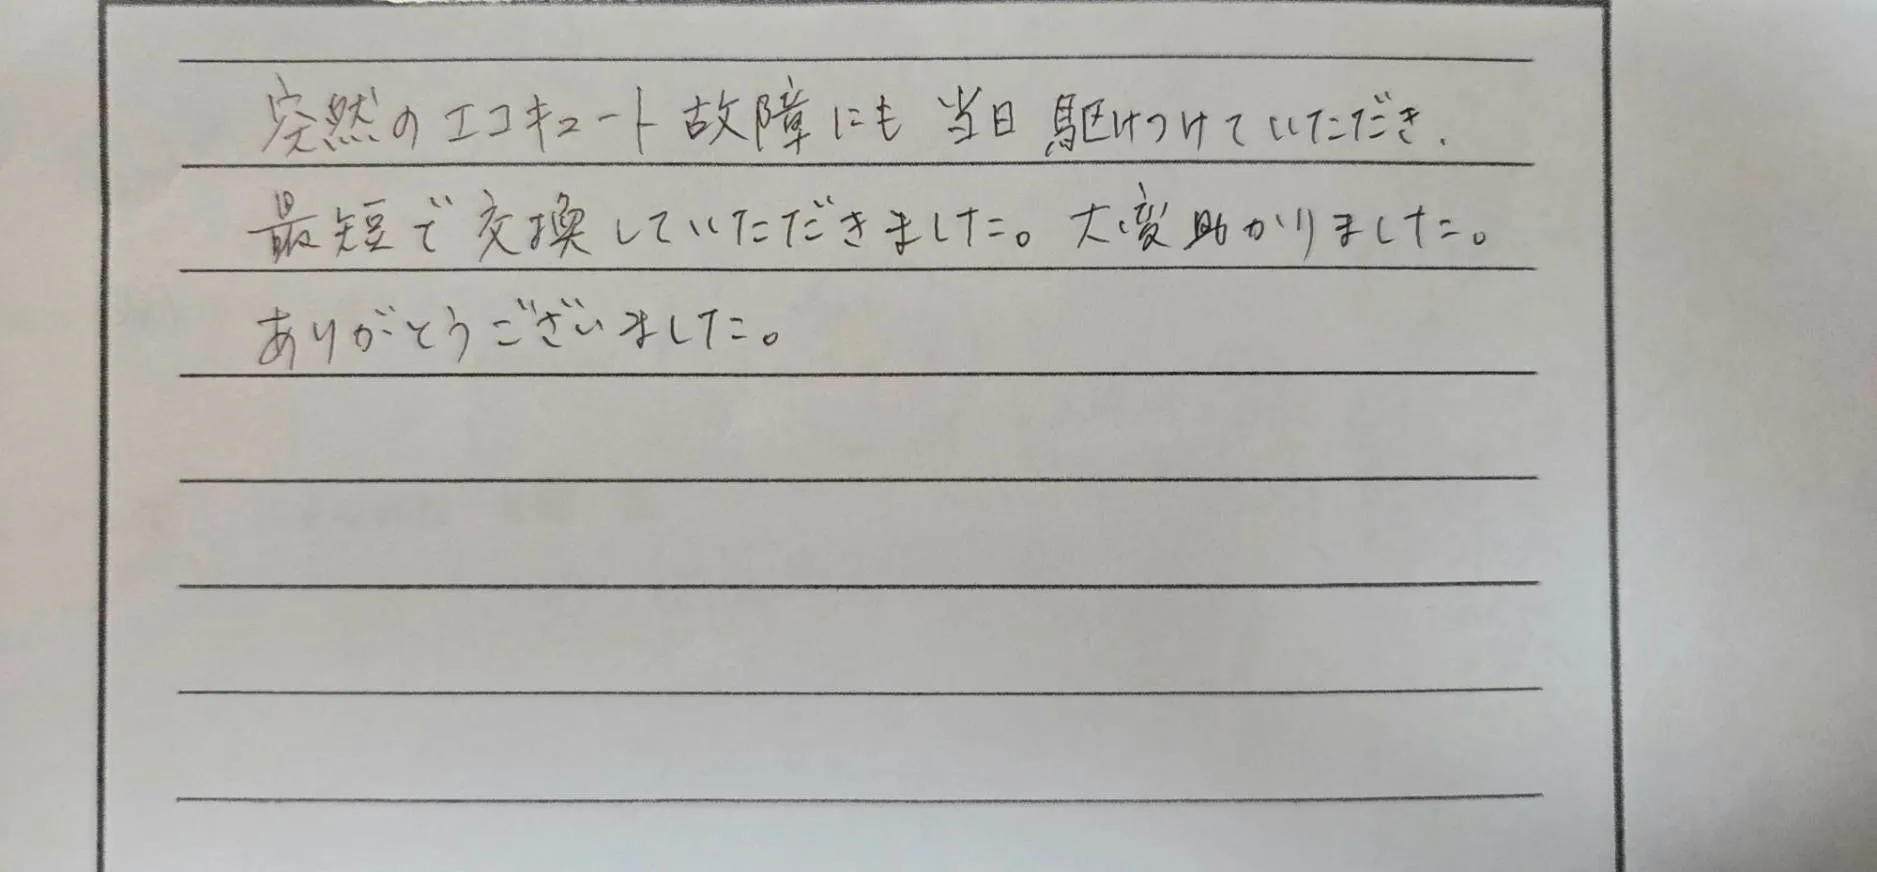 突然のエコキュート故障にも当日駆けつけていただき、
最短で交換していただきました。大変助かりました。
ありがとうございました。